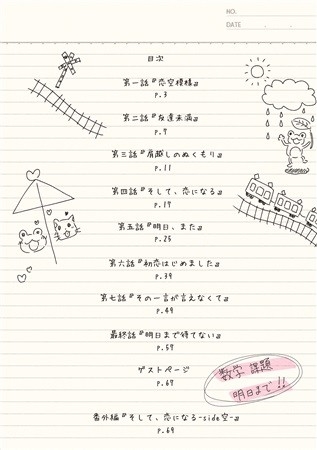 NO.
DATE . .
目次
第一話『恋空模様』
p.3
第二話『友達未満』
p.7
第三話『肩越しのぬくもり』
p.11
第四話『そして、恋になる』
p.17
第五話『明日、また』
p.25
第六話『初恋はじめました』
p.39
第七話『その一言が言えなくて』
p.49
最終話『明日まで待てない』
p.57
ゲストページ
p.67
数学 課題
明日まで!!
番外編『そして、恋になる-side空-』
p.69